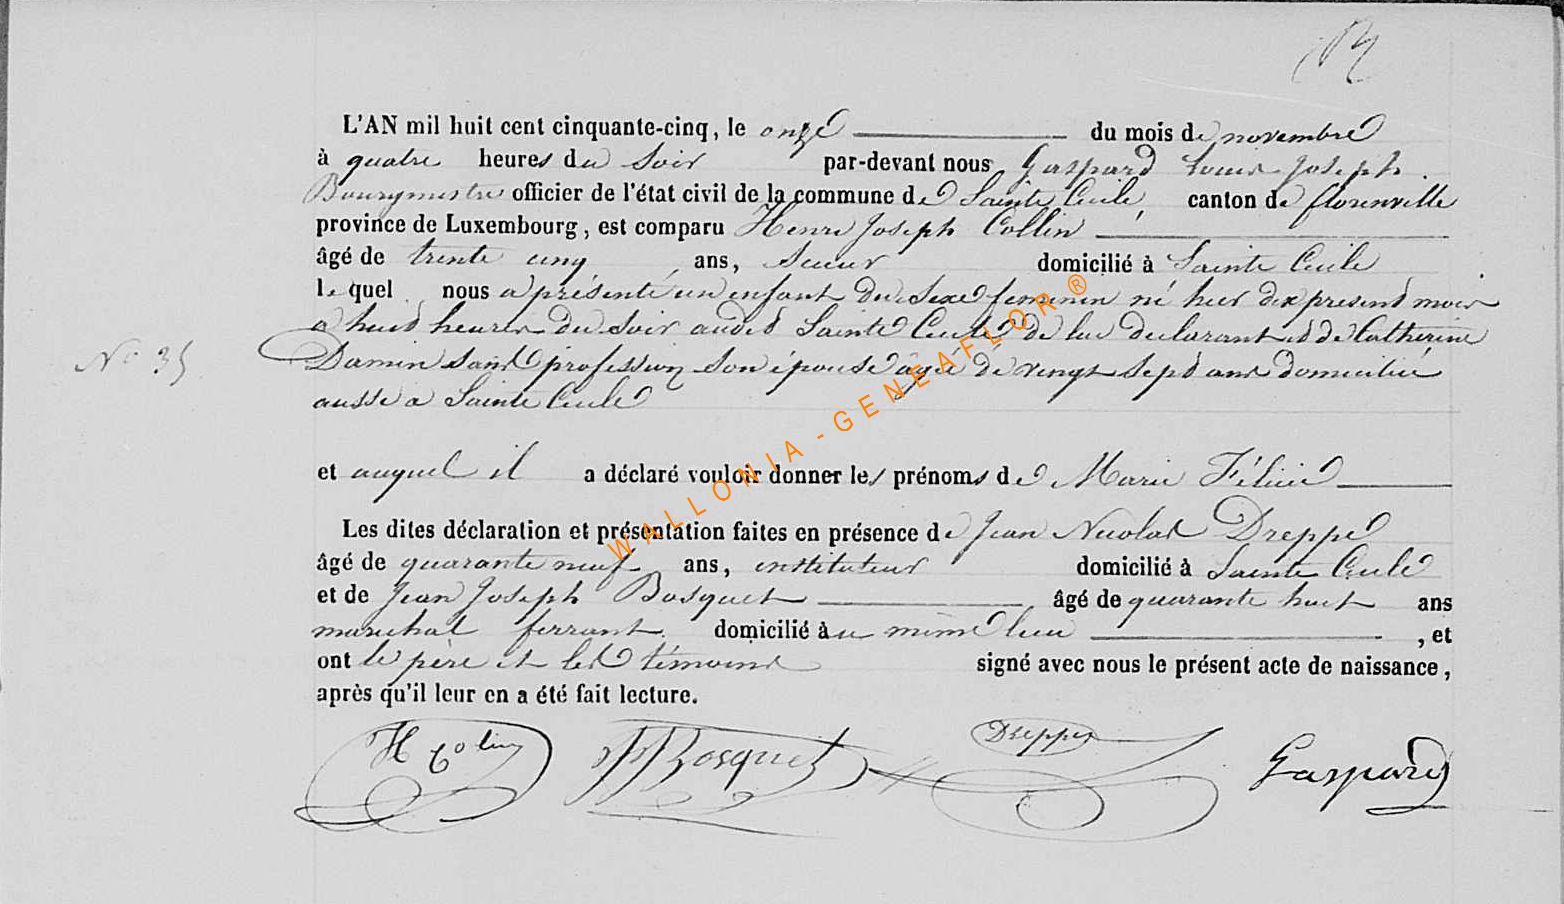 L'AN mil huit cent cinquante-cinq, le onze du mois de novembre
à quatre heures du soir par-devant nous Gaspard Louis Joseph
Bourgmestre officier de l'état civil de la commune de Sainte Cecile, canton de florenville
province de Luxembourg, est comparu Henri Joseph Collin
âgé de trente cinq ans, domicilié à Sainte Cecile
lequel nous a présenté un enfant du sexe feminin né hier dix present mois
a huit heures du soir audit Sainte Cecile de lui declarant et de Catherine
Damin sans profession son épouse âgée de vingt sept ans domiciliée
N° 35
aussi a Sainte Cecile
et auquel il a déclaré vouloir donner les prénoms de Marie Félicie
Les dites déclaration et présentation faites en présence de Jean Nicolas Dreppe
âgé de quarante neuf ans, instituteur domicilié à Sainte Cecile
et de Jean Joseph Bosquet âgé de quarante huit ans
marechal ferrant domicilié au même lieu , et
ont le père et les témoins signé avec nous le présent acte de naissance,
après qu'il leur en a été fait lecture.
H Colin JJ Bosquet Dreppe Gaspard
WALLONIA - GENEAFLOR ®